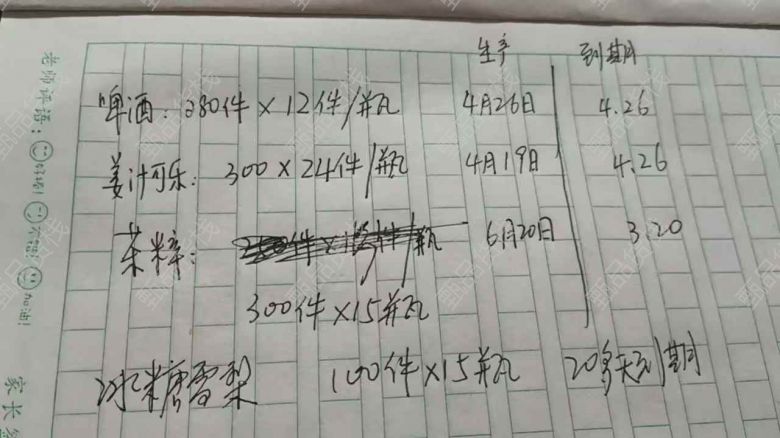 生产 到期
啤酒：280件×12件/瓶 4月26日 4.26
姜汁可乐：300×24件/瓶 4月19日 4.26
茶粹： 6月20日 3.20
300件×15瓶
冰糖雪梨 100件×15瓶 20多天到期
老师评语：
好棒！
不错！
加油！
家长